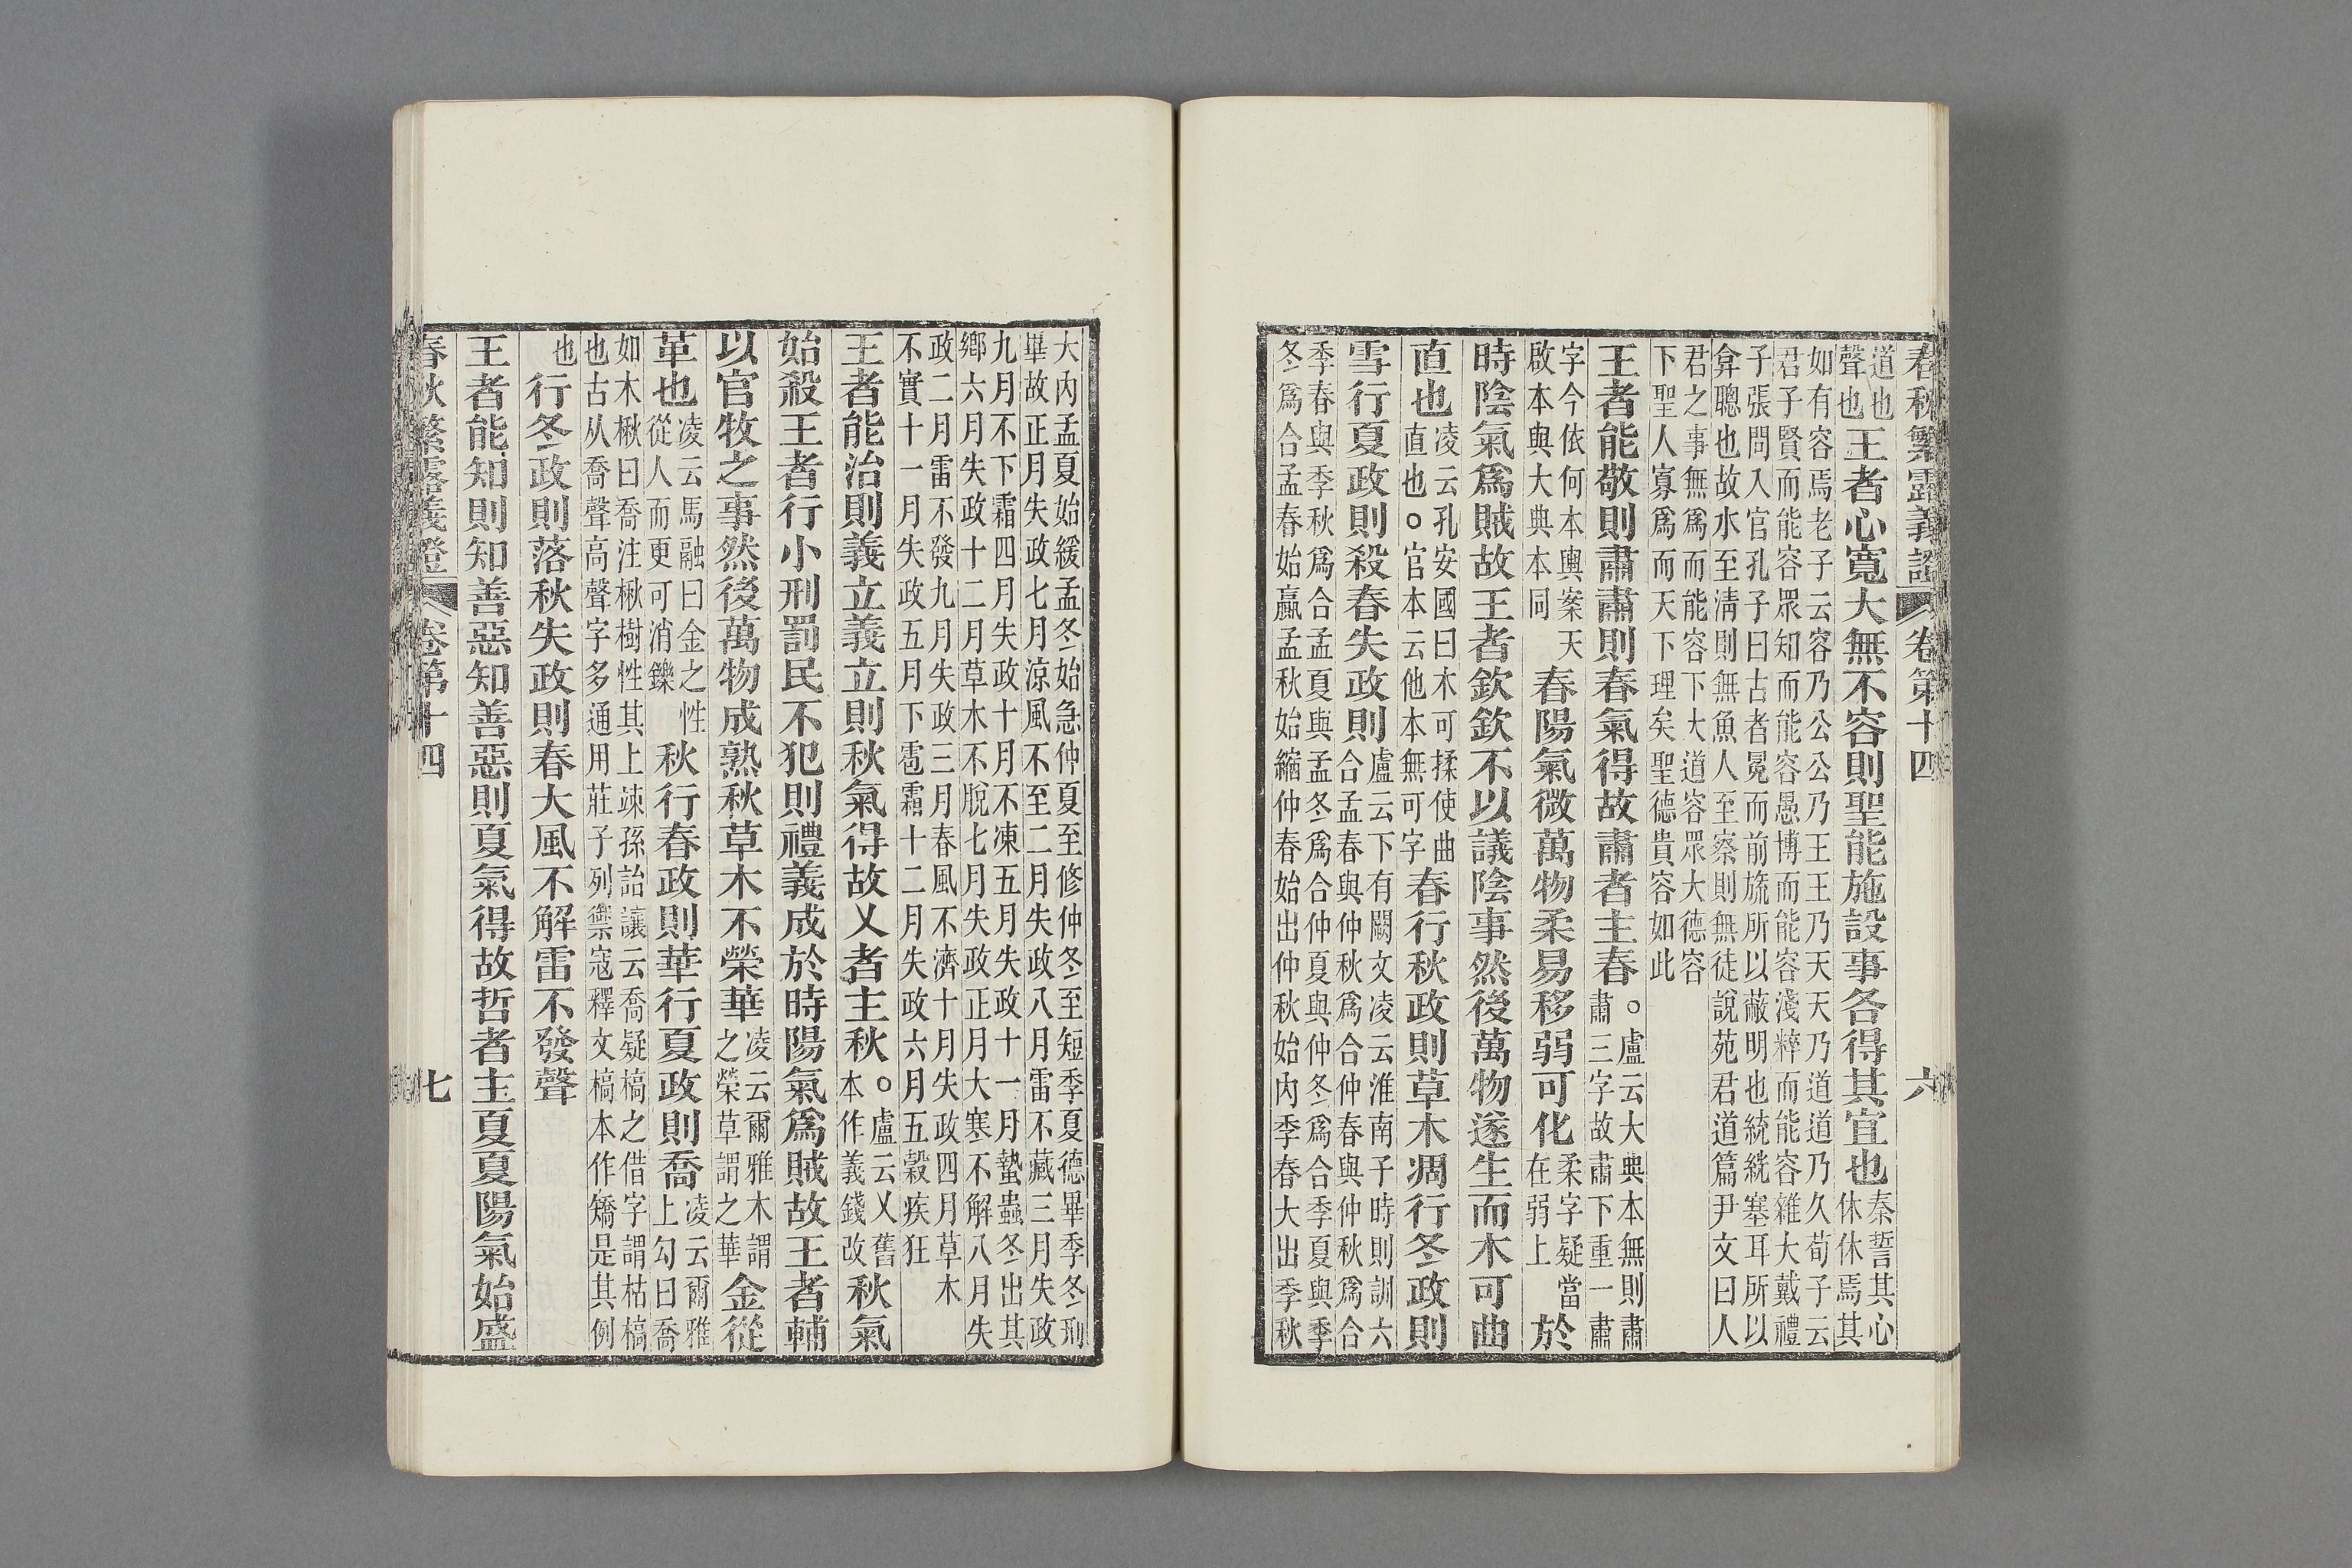 春秋繁露義證 卷第十四 六
道也
聲也
王者心寬大無不容則聖能施設事各得其宜也
秦誓其心
休休焉其
如有容焉老子云容乃公公乃王王乃天天乃道道乃久荀子云
君子賢而能容眾知而能容愚博而能容淺粹而能容雜大戴禮
子張問入官孔子曰古者冕而前旒所以蔽明也統絖塞耳所以
弇聰也故水至清則無魚人至察則無徒說苑君道篇尹文曰人
君之事無爲而能容下大道容眾大德容
下聖人寡爲而天下理矣聖德貴容如此
王者能敬則肅肅則春氣得故肅者主春
。盧云大典本無則肅
肅三字故肅下重一肅
字今依何本輿案天
啟本與大典本同
春陽氣微萬物柔易移弱可化
柔字疑當
在弱上
於
時陰氣爲賊故王者欽欽不以議陰事然後萬物遂生而木可曲
直也
凌云孔安國曰木可揉使曲
直也。官本云他本無可字
春行秋政則草木凋行冬政則
雪行夏政則殺春失政則
盧云下有闕文凌云淮南子時則訓六
合孟春與仲秋爲合仲春與仲秋爲合
季春與季秋爲合孟夏與孟冬爲合仲夏與仲冬爲合季夏與季
冬爲合孟春始贏孟秋始縮仲春始出仲秋始內季春大出季秋
大內孟夏始緩孟冬始急仲夏至修仲冬至短季夏德畢季冬刑
畢故正月失政七月涼風不至二月失政八月雷不藏三月失政
九月不下霜四月失政十月不凍五月失政十一月蟄蟲冬出其
鄉六月失政十二月草木不脫七月失政正月大寒不解八月失
政二月雷不發九月失政三月春風不濟十月失政四月草木
不實十一月失政五月下雹霜十二月失政六月五穀疾狂
王者能治則義立義立則秋氣得故乂者主秋
。盧云乂舊
本作義錢改
秋氣
始殺王者行小刑罰民不犯則禮義成於時陽氣爲賊故王者輔
以官牧之事然後萬物成熟秋草木不榮華
凌云爾雅木謂
之榮草謂之華
金從
革也
凌云馬融曰金之性
從人而更可消鑠
秋行春政則華行夏政則喬
凌云爾雅
上勾曰喬
如木楸曰喬注楸樹性其上竦孫詒讓云喬疑槁之借字謂枯槁
也古从喬聲高聲字多通用莊子列禦寇釋文槁本作矯是其例
也
行冬政則落秋失政則春大風不解雷不發聲
王者能知則知善惡知善惡則夏氣得故哲者主夏夏陽氣始盛
春秋繁露義證 卷第十四 七